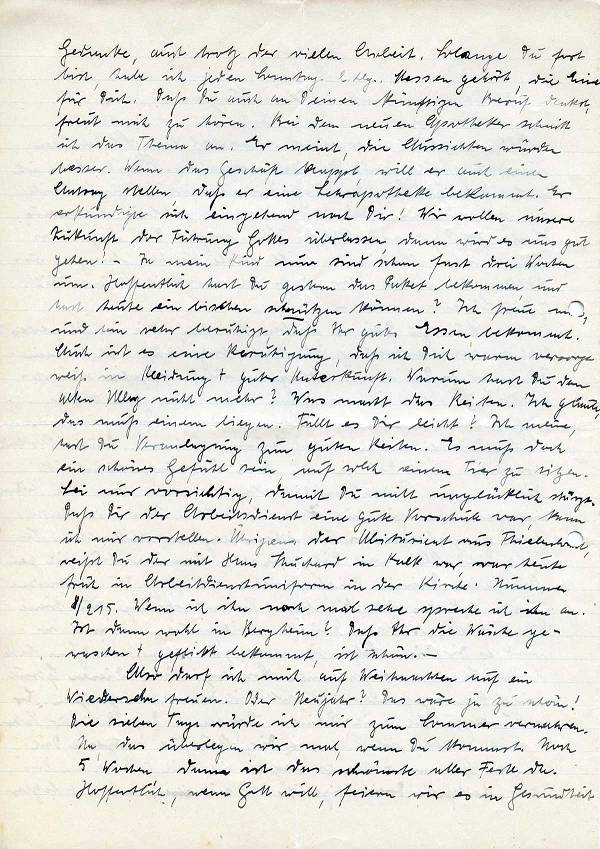 Gedanke, auch trotz der vielen Arbeit. Solange Du fort
bist, habe ich jeden Sonntag 2 hlg. Messen gehört, die Eine
für Dich. Daß Du auch an Deinen künftigen Beruf denkst,
freut mich zu hören. Bei dem neuen Apotheker schnitt
ich das Thema an. Er meint, die Aussichten würden
besser. Wenn das Geschäft klappt will er auch einen
Antrag stellen, daß er eine Lehrapotheke bekommt. Er
erkundigte sich eingehend nach Dir! Wir wollen unsere
Zukunft der Führung Gottes überlassen, dann wird es uns gut
gehen. – Ja mein Kind nun sind schon fast drei Wochen
um. Hoffentlich hast Du gestern das Paket bekommen und
hast heute ein bischen schnützen können? Ich freue mich,
und bin sehr beruhigt, daß Ihr gutes Essen bekommt.
Auch ist es eine Beruhigung, daß ich Dich warm versorgt
weiß in Kleidung + guter Unterkunft. Warum hast Du den
alten nicht mehr? Was macht das Reiten. Ich glaube,
das muß einem liegen. Fällt es Dir leicht? Ich meine,
hast Du Veranlagung zum guten Reiten. Es muß doch
ein schönes Gefühl sein auf solch einem Tier zu sitzen.
Sei nur vorsichtig, damit Du nicht unglücklich stürzt.
Daß Dir der Arbeitsdienst eine gute Vorschule war, kann
ich mir vorstellen. Übrigens der Abiturient aus
weißt Du der mit Hans in Kalk war, war heute
früh in Arbeitdienstuniform in der Kirche. Nummer
8/215. Wenn ich ihn noch mal sehe spreche ich ihn an.
Ist dann wohl in Bergheim? Daß Ihr die Wäsche ge-
waschen + geflickt bekommt, ist schön. –
Also darf ich mich auf Weihnachten auf ein
Wiedersehn freuen. Oder Neujahr? Das wäre ja zu schön!
Die sieben Tage würde ich mir zum Sommer verwahren.
Na das überlegen wir mal, wenn Du kommst. Noch
5 Wochen dann ist das schönste aller Feste da.
Hoffentlich, wenn Gott will, feiern wir es in Gesundheit